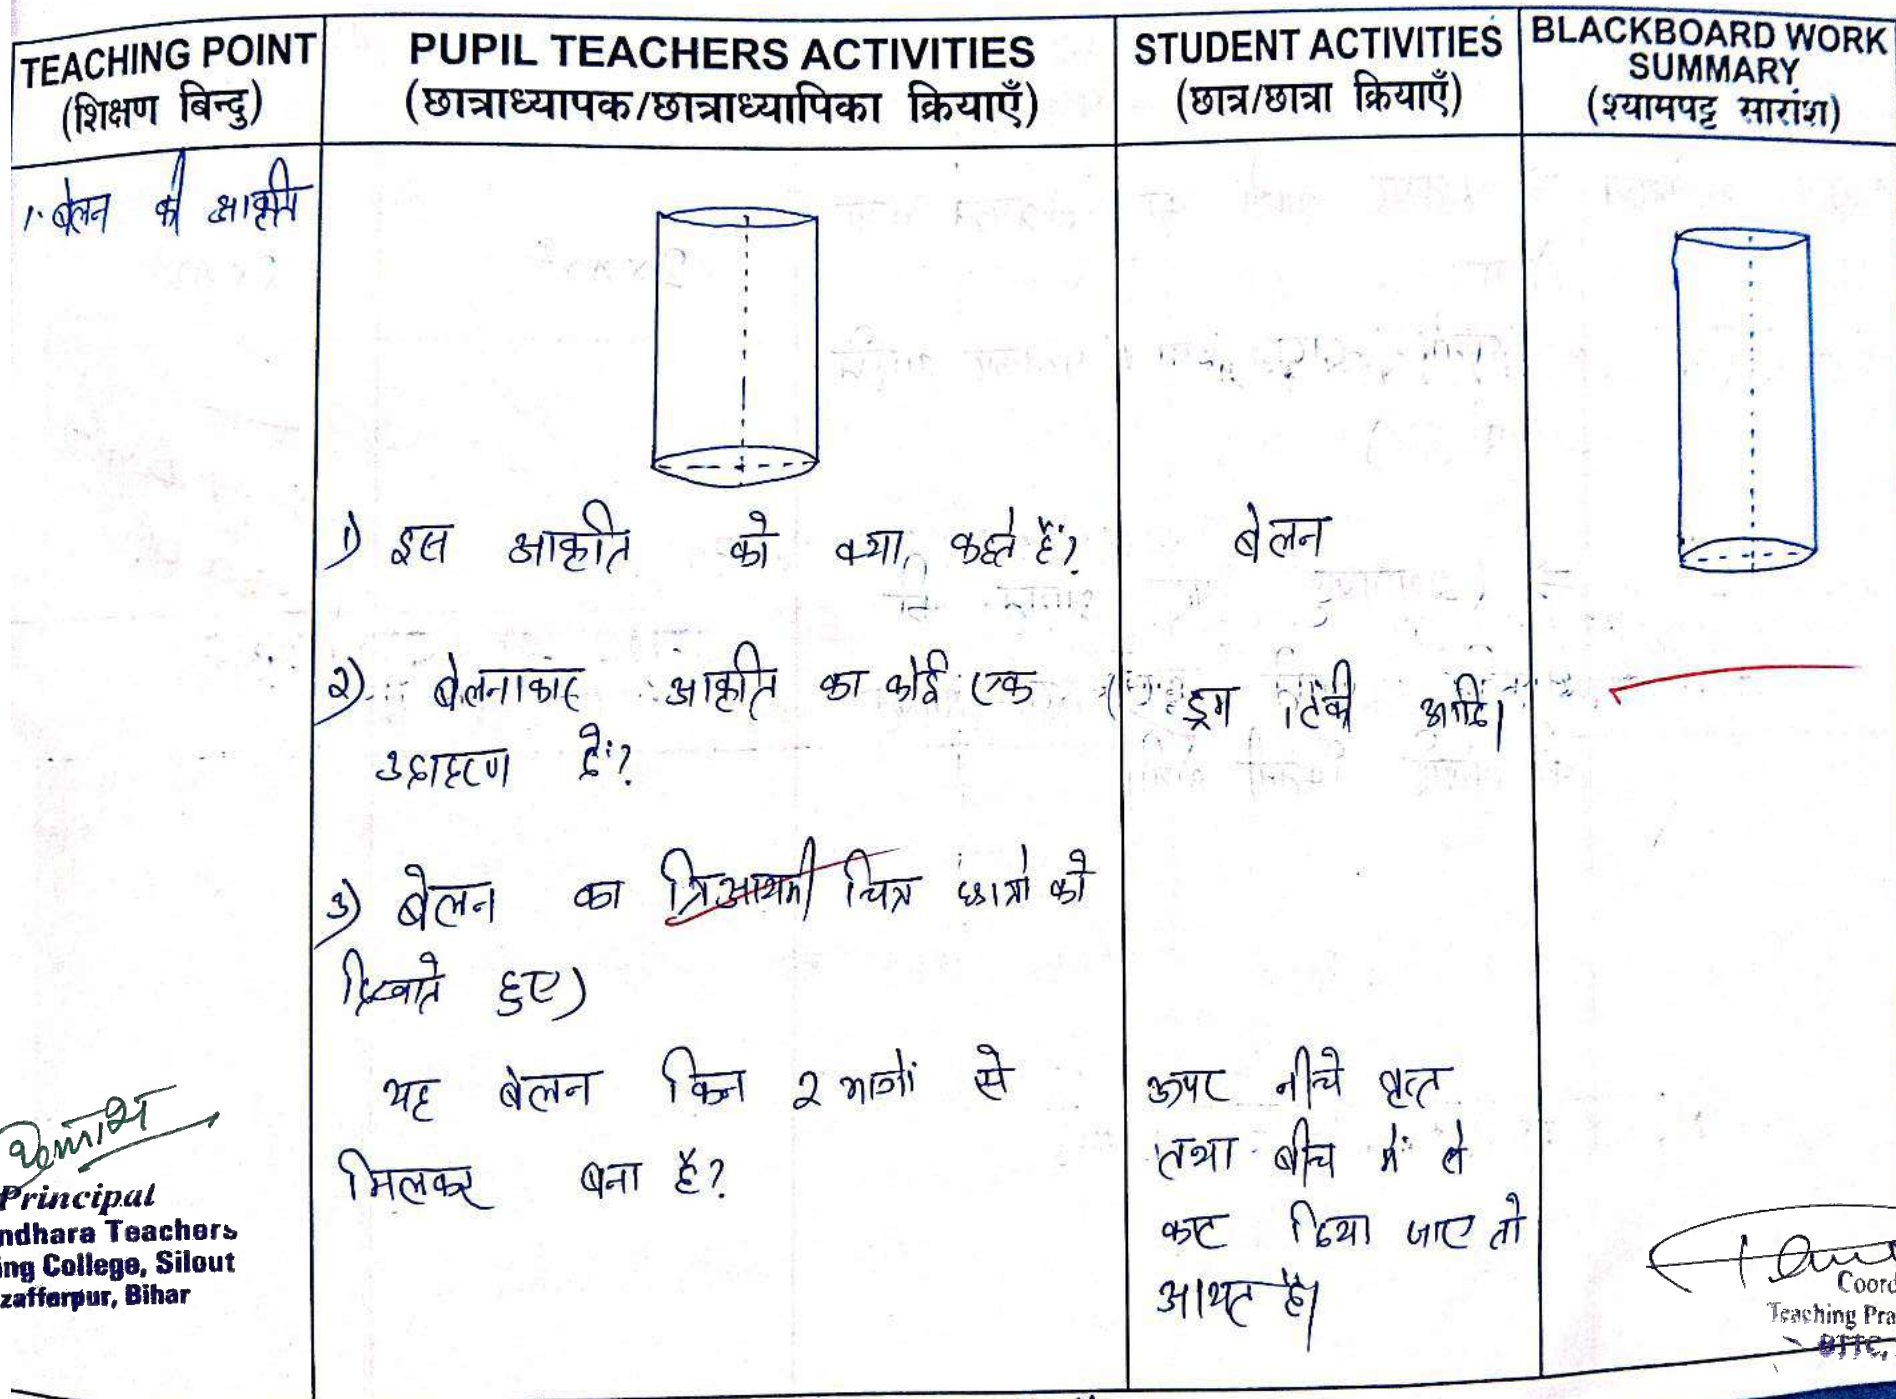 TEACHING POINT
(शिक्षण बिन्दु)
PUPIL TEACHERS ACTIVITIES
(छात्राध्यापक/छात्राध्यापिका क्रियाएँ)
STUDENT ACTIVITIES
(छात्र/छात्रा क्रियाएँ)
BLACKBOARD WORK
SUMMARY
(श्यामपट्ट सारांश)
1. बेलन की आकृति
1) इस आकृति को क्या कहते हैं?
बेलन
2) बेलनाकार आकृति का कोई एक
उदाहरण दें?
ड्रम टंकी आदि।
3) बेलन का त्रिआयामी चित्र छात्रो को
दिखाते हुए)
यह बेलन किन 2 भागों से
मिलकर बना है?
ऊपर नीचे वृत्त
तथा बीच में से
काट दिया जाए तो
आयत है।
Principal
ndhara Teachers
ing College, Silout
zafferpur, Bihar
Coord
Teaching Pra
BTTC,